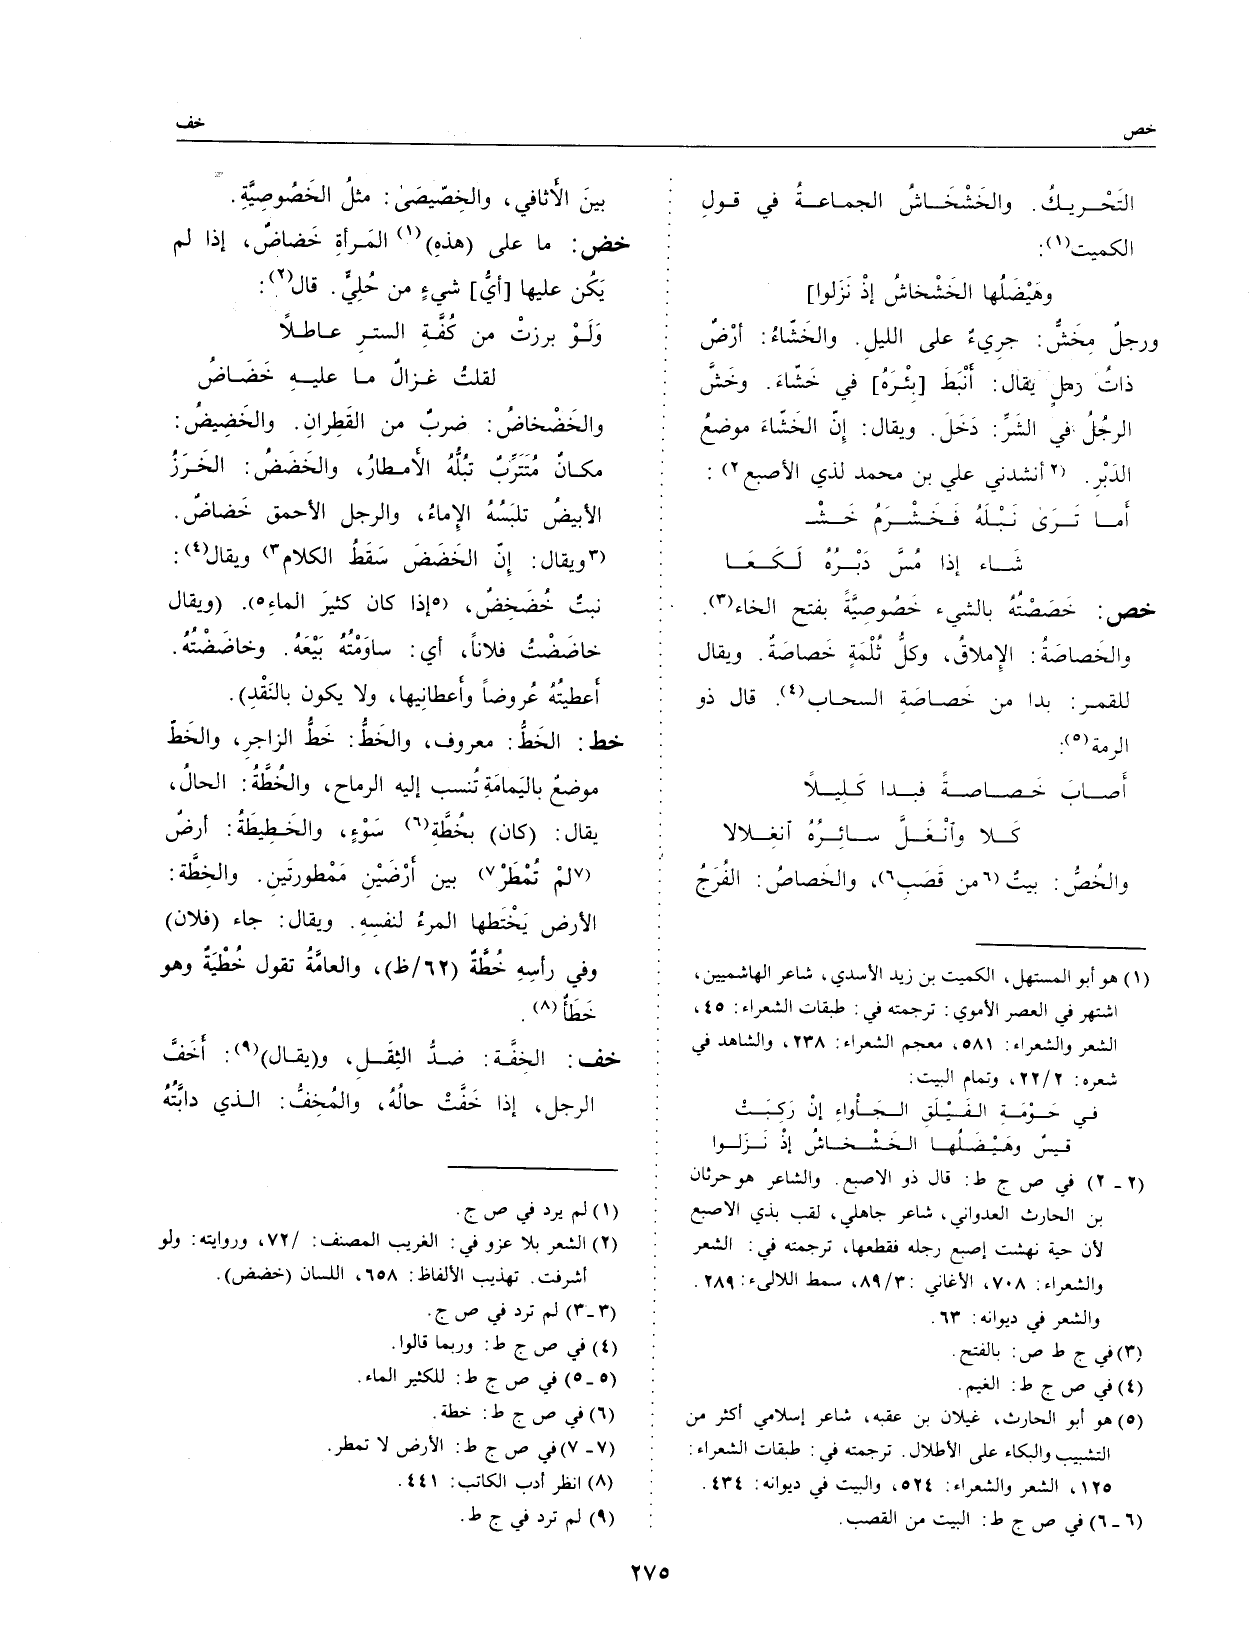 خص
خف
التَحْـرِيـكُ. والخَشْخَـاشُ الجماعـةُ في قـولِ
الكميت(١):
وهَيْضَلُها الخَشْخاشُ إذْ نَزَلوا]
ورجلٌ مِخَشٌّ: جريءٌ على الليل. والخَشّاءُ: أرْضٌ
ذاتُ رملٍ يقال: أَنْبَطَ [بِئْرَهُ] في خَشّاءَ. وخَشَّ
الرجُلُ في الشَرِّ: دَخَلَ. ويقال: إنّ الخَشّاءَ موضعُ
الدَبْرِ. (٢أنشدني علي بن محمد لذي الأصبع٢):
أمـا تَـرَى نَبْلَهُ فَـخَشْـرَمُ خَـشْـ
شَـاء إذا مُسَّ دَبْـرُهُ لَـكَـعَـا
خص: خَصَصْتُهُ بالشيء خَصُوصِيَّةً بفتح الخاء(٣).
والخَصاصَةُ: الإملاق، وكلُّ ثُلْمَةٍ خَصاصَةٌ. ويقال
للقمـر: بدا من خَصـاصَةِ السحاب(٤). قال ذو
الرمة(٥):
أصـابَ خَـصـاصـةً فبـدا كَـلِيـلاً
كَـلا وآنْـغَـلَّ سـائِـرُهُ آنغِـلالا
والخُصُّ: بيتٌ (٦من قَصَب٦)، والخَصاصُ: الفُرَجُ
(١) هو أبو المستهل، الكميت بن زيد الأسدي، شاعر الهاشميين،
اشتهر في العصر الأموي: ترجمته في: طبقات الشعراء: ٤٥،
الشعر والشعراء: ٥٨١، معجم الشعراء: ٢٣٨، والشاهد في
شعره: ٢٢/٢، وتمام البيت:
في حَـوْمَـةِ الفَيْلَقِ الجَـأواءِ إنْ رَكِبَـتْ
قيـسٌ وهَيْـضَـلُهـا الخَـشْـخـاشُ إذْ نَـزَلـوا
(٢ - ٢) في ص ج ط: قال ذو الاصبع. والشاعر هو حرثان
بن الحارث العدواني، شاعر جاهلي، لقب بذي الاصبع
لأن حية نهشت إصبع رجله فقطعها، ترجمته في: الشعر
والشعراء: ٧٠٨، الأغاني :٨٩/٣، سمط اللالىء: ٢٨٩.
والشعر في ديوانه: ٦٣.
(٣) في ج ط ص: بالفتح.
(٤) في ص ج ط: الغيم.
(٥) هو أبو الحارث، غيلان بن عقبه، شاعر إسلامي أكثر من
التشبيب والبكاء على الأطلال. ترجمته في: طبقات الشعراء:
١٢٥، الشعر والشعراء: ٥٢٤، والبيت في ديوانه: ٤٣٤.
(٦ - ٦) في ص ج ط: البيت من القصب.
بينَ الأَثافي، والخِصّيصَىٰ: مثلُ الخَصُوصِيَّةِ.
خض: ما على (هذهِ)(١) المَرأةِ خَضاضٌ، إذا لم
يَكُن عليها [أيُّ] شيءٍ من حُلِيٍّ. قال(٢):
وَلَـوْ برزتْ من كُفَّـةِ الستـرِ عـاطـلاً
لقلتُ غـزالٌ مـا عليـهِ خَضَـاضُ
والخَضْخاضُ: ضربٌ من القَطِرانِ. والخَضِيضُ:
مكـانٌ مُتَتَرِّبٌ تَبُلُّهُ الأمـطارُ، والخَضَضُ: الخَـرَزُ
الأبيضُ تلبَسُهُ الإماءُ، والرجل الأحمق خَضاضٌ.
(٣ويقال: إنّ الخَضَضَ سَقَطُ الكلام٣) ويقال(٤):
نبتٌ خُضَخِضٌ، (٥إذا كان كثيرَ الماءِ٥). (ويقال
خاضَضْتُ فلاناً، أي: ساوَمْتُهُ بَيْعَهُ. وخاضَضْتُهُ.
أعطيتُهُ عُروضاً وأعطانِيها، ولا يكون بالنَقْدِ).
خط: الخَطُّ: معروف، والخَطُّ: خَطُّ الزاجرِ، والخَطّ
موضعٌ باليَمامَةِ تُنسب إليه الرماح، والخُطَّةُ: الحالُ،
يقال: (كان) بخُطَّةِ(٦) سَوْءٍ، والخَـطِيطَةُ: أرضٌ
(٧لمْ تُمْطَرْ٧) بين أرْضَيْنِ مَمْطورَتَينِ. والخِطَّة:
الأرض يَخْتَطها المرءُ لنفسِهِ. ويقال: جاء (فلان)
وفي رأسِهِ خُطَّةٌ (٦٢/ظ)، والعامَّةُ تقول خُطْيَةٌ وهو
خَطَأٌ(٨).
خف: الخفَّة: ضـدُّ الثِقَـل، و(يقـال)(٩): أَخَفَّ
الرجل، إذا خَفَّتْ حالُهُ، والمُخِفُّ: الـذي دابَّتُهُ
(١) لم يرد في ص ج.
(٢) الشعر بلا عزو في: الغريب المصنف: /٧٢، وروايته: ولو
أشرفت. تهذيب الألفاظ: ٦٥٨، اللسان (خضض).
(٣-٣) لم ترد في ص ج.
(٤) في ص ج ط: وربما قالوا.
(٥ - ٥) في ص ج ط: للكثير الماء.
(٦) في ص ج ط: خطة.
(٧ - ٧) في ص ج ط: الأرض لا تمطر.
(٨) انظر أدب الكاتب: ٤٤١.
(٩) لم ترد في ج ط.
٢٧٥